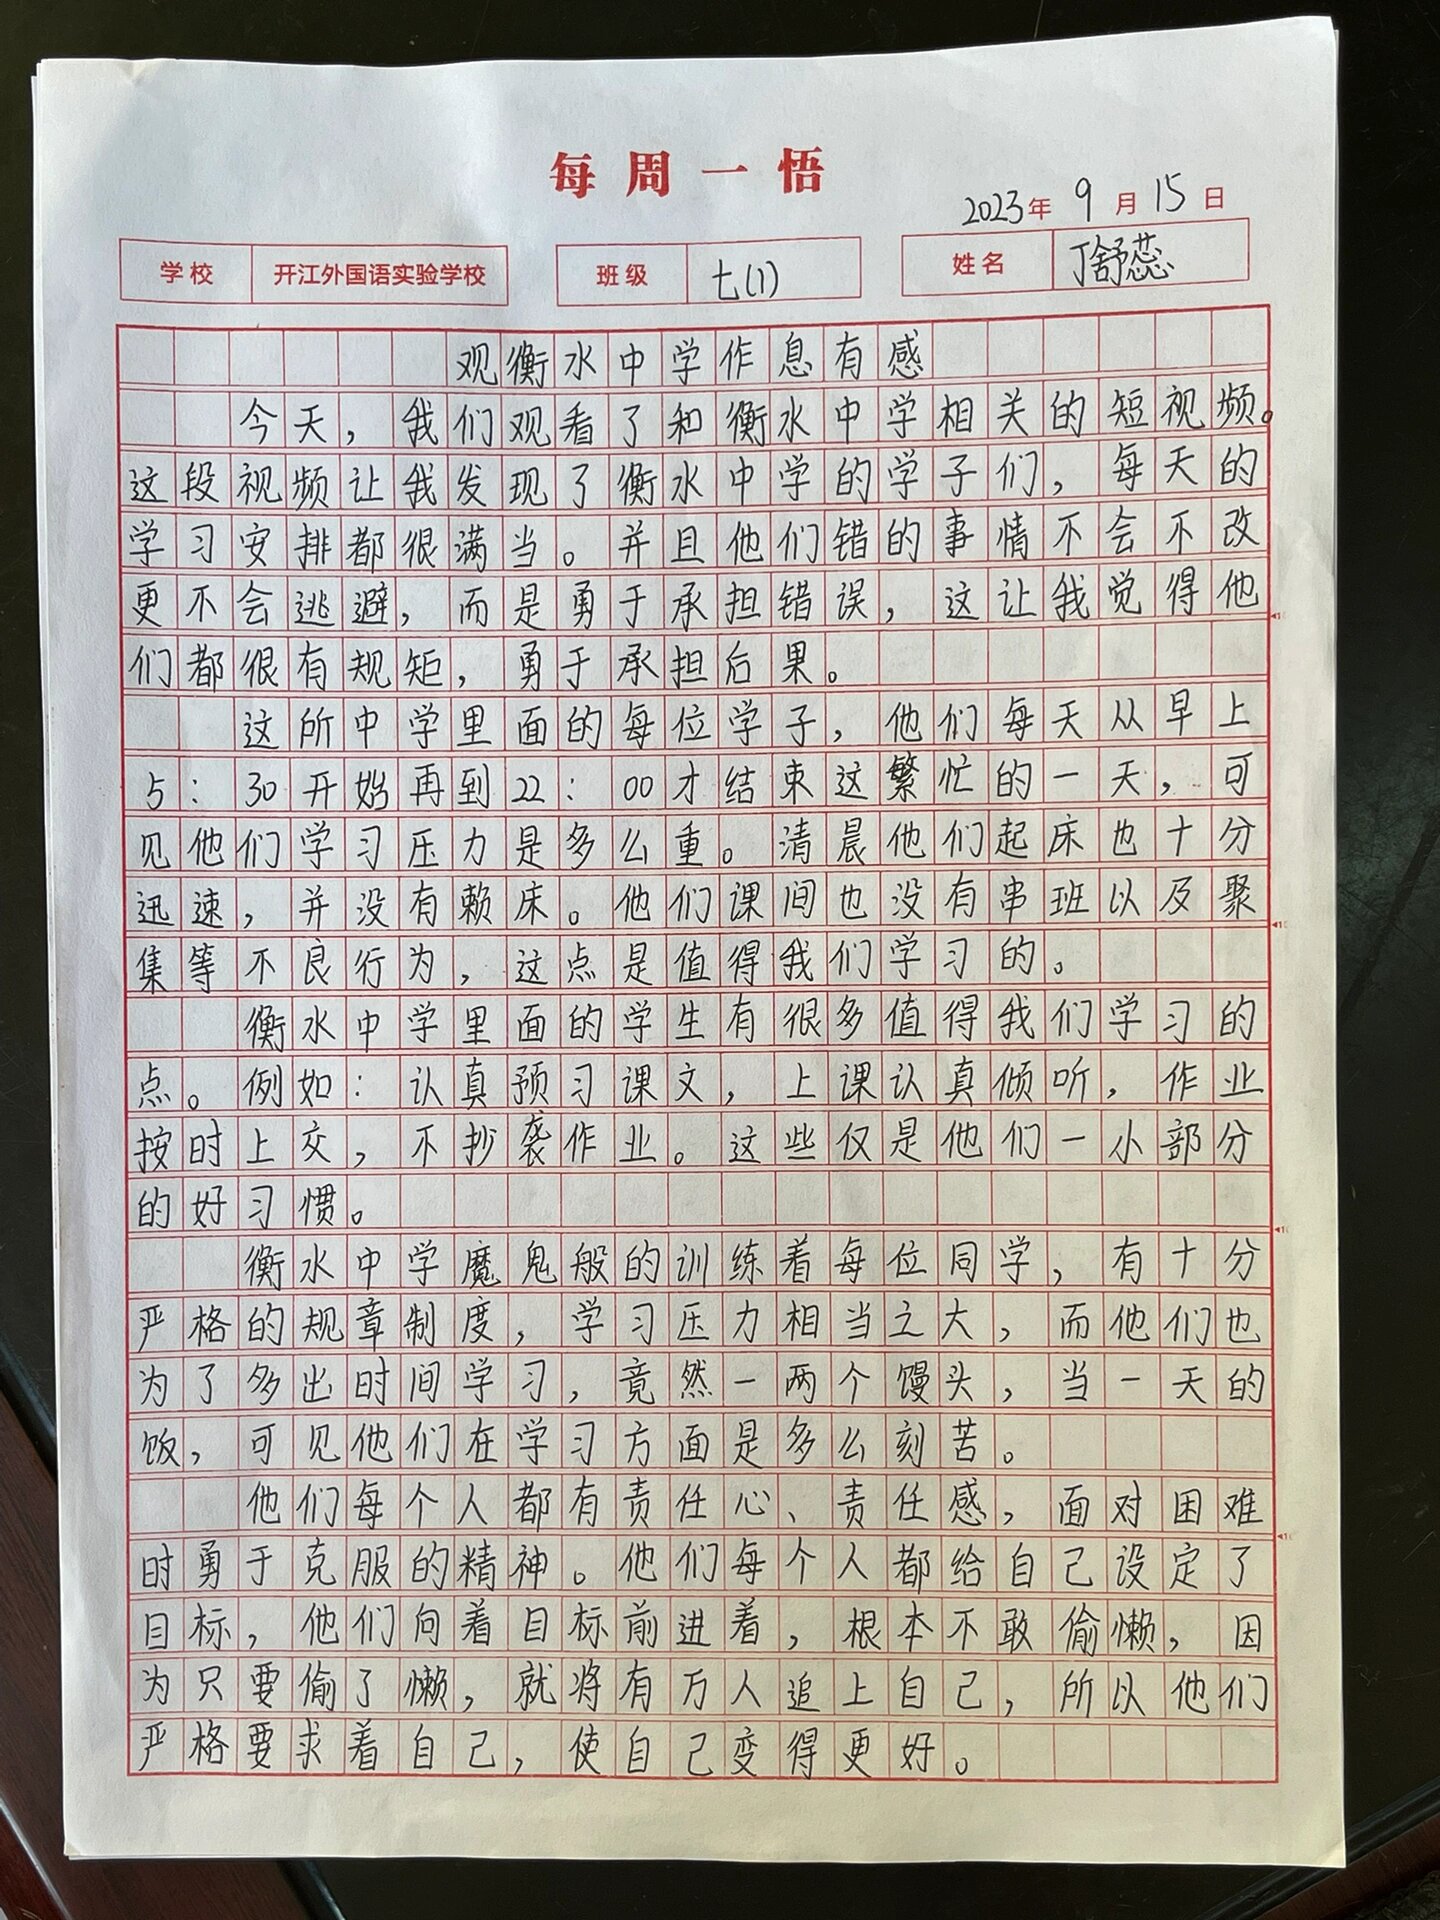 每周一悟
2023年 9月15日
学校 开江外国语实验学校 班级 七(1) 姓名 丁舒蕊
观衡水中学作息有感
今天，我们观看了和衡水中学相关的短视频。
这段视频让我发现了衡水中学的学子们，每天的
学习安排都很满当。并且他们错的事情不会不改
更不会逃避，而是勇于承担错误，这让我觉得他
们都很有规矩，勇于承担后果。
这所中学里面的每位学子，他们每天从早上
5：30开始再到22：00才结束这繁忙的一天，可
见他们学习压力是多么重。清晨他们起床也十分
迅速，并没有赖床。他们课间也没有串班以及聚
集等不良行为，这点是值得我们学习的。
衡水中学里面的学生有很多值得我们学习的
点。例如：认真预习课文，上课认真倾听，作业
按时上交，不抄袭作业。这些仅是他们一小部分
的好习惯。
衡水中学魔鬼般的训练着每位同学，有十分
严格的规章制度，学习压力相当之大，而他们也
为了多出时间学习，竟然一两个馒头，当一天的
饭，可见他们在学习方面是多么刻苦。
他们每个人都有责任心、责任感，面对困难
时勇于克服的精神。他们每个人都给自己设定了
目标，他们向着目标前进着，根本不敢偷懒，因
为只要偷了懒，就将有万人追上自己，所以他们
严格要求着自己，使自己变得更好。